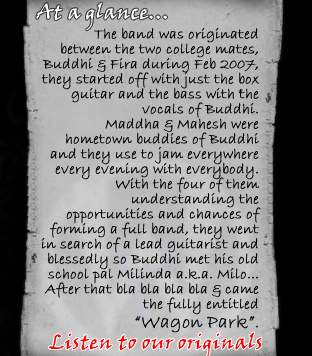 At a glance...
The band was originated
between the two college mates,
Buddhi & Fira during Feb 2007,
they started off with just the box
guitar and the bass with the
vocals of Buddhi.
Maddha & Mahesh were
hometown buddies of Buddhi
and they use to jam everywhere
every evening with everybody.
With the four of them
understanding the
opportunities and chances of
forming a full band, they went
in search of a lead guitarist and
blessedly so Buddhi met his old
school pal Milinda a.k.a. Milo...
After that bla bla bla bla & came
the fully entitled
“Wagon Park”.
Listen to our originals